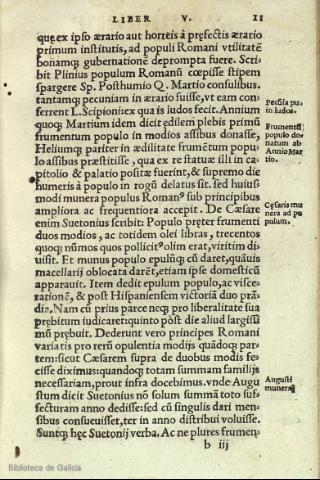 LIBER V. 11
quę ex ipso ærario aut horreis à præfectis ærario
primum institutis, ad populi Romani vtilitatẽ
bonamq; gubernationẽ deprompta fuere. Scri-
bit Plinius populum Romanũ cœpisse stipem
spargere Sp. Posthumio Q. Martio consulibus.
tantamq; pecuniam in ærario fuisse, vt eam con-
ferrent L. Scipioni: ex qua is ludos fecit. Annium
quoq; Martium idem dicit ędilem plebis primũ
frumentum populo in modios assibus donasse,
Heliumq; pariter in ædilitate frumẽtum popu-
lo assibus præstitisse, qua ex re statuæ illi in ca-
pitolio & palatio positæ fuerint, & supremo die
humeris à populo in rogũ delatus sit. sed huius-
modi munera populus Romanꝰ sub principibus
ampliora ac frequentiora accepit. De Cæsare
enim Suetonius scribit: Populo pręter frumenti
duos modios, ac totidem olei libras, trecentos
quoq; nũmos quos pollicitꝰ olim erat, viritim di-
uisit. Et munus populo epulũq; cũ daret, quãuis
macellarij oblocata darẽt, etiam ipse domesticũ
apparauit. Item dedit epulum populo, ac visce-
rationẽ, & post Hispaniensem victoriã duo prã-
dia. Nam cũ prius parce neq; pro liberalitate sua
prębitum iudicaret: quinto pòst die aliud largissi
mũ prębuit. Dederunt vero principes Romani
variatis pro rerũ opulentia modijs quãdoq; par-
tem: sicut Cæsarem supra de duobus modis fe-
cisse diximus: quandoq; totam summam familijs
necessariam, prout infra docebimus. vnde Augu
stum dicit Suetonius nõ solum summã toto suf-
fecturam anno dedisse: sed cũ singulis dari men-
sibus consueuisset, ter in anno distribui voluisse.
Suntq; hęc Suetonij verba. Ac ne plures frumen-
b iij
in ludos.
Frumentũ
populo do-
natum ab
Annio Mar
tio.
Cęsaris mu
nera ad po
pulum.
Augusti
munera
Biblioteca de Galicia